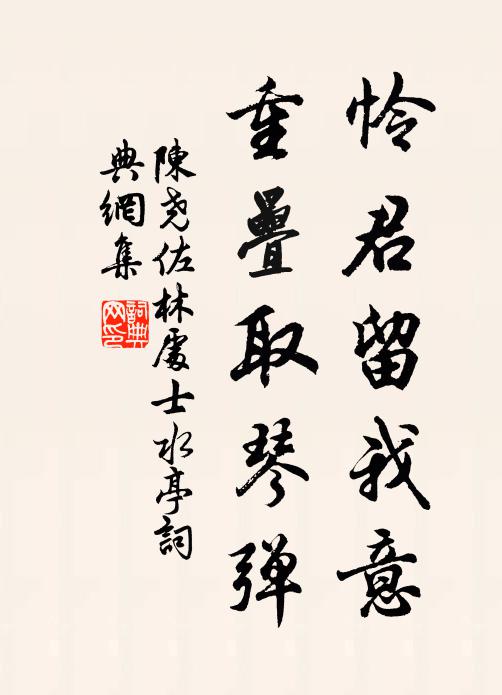 怜君留我意
重疊取琴弹
陳尧佐林處士水亭詞
典網集
詞典網印